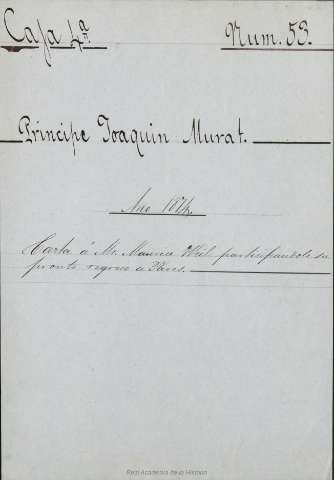 Caja 4.ª Num. 53.
Principe Joaquin Murat.
Año 1874.
Carta á Mr. Maurice Weil participandole su
pronto regreso a Paris.
Real Academia de la Historia